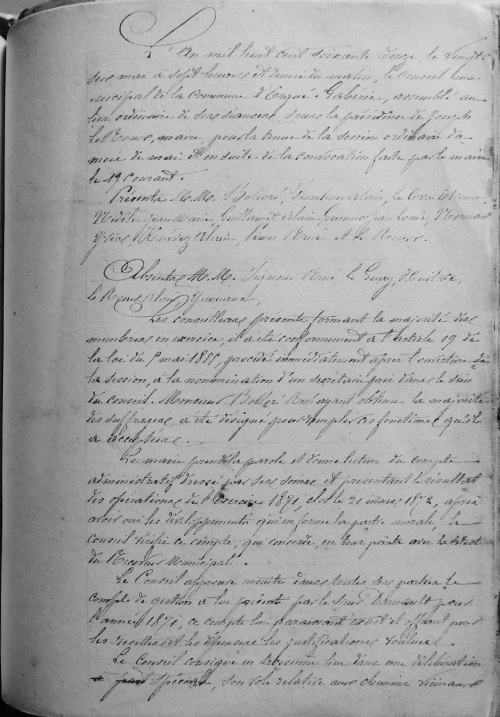 L'An mil huit cent soixante douze, le vingt
six mai à sept heures et demie du matin, le Conseil mu
nicipal de la Commune d'Ergué-Gabéric, assemblé au
lieu ordinaire de ses séances sous la présidence de Joseph
Le Roux, maire, pour la tenue de la session ordinaire du
mois de mai et en suite de la convocation faite par le maire
le 19 courant.
Présents M.M. Bolloré, Alain, Le Corre
Nédélec Jean Marie, Guillamet Alain, Jean Louis,
Yves, Alain, René et Le Roux.
Absents M.M. René, Le Guay, Huitric,
Le
Les conseillers présents formant la majorité des
membres en exercice, il a été conformément à l'article 19 de
la loi du 5 mai 1855, procédé immédiatement après l'ouverture de
la session, à la nomination d'un secrétaire pris dans le sein
du conseil. Monsieur Bolloré ayant obtenu la majorité
des suffrages, a été désigné pour remplir ces fonctions qu'il
a acceptées.
Le maire prend la parole et donne lecture du compte
administratif dressé par ses soins et présentant le résultat
des opérations de l'Exercice 1871, clos le 31 mars 1872, après
avoir ouï les développements qui en forme la partie morale, le
conseil vérifie ce compte, qui concorde, en tous points avec
du Receveur Municipal.
Le Conseil approuve ensuite dans toutes ses parties le
compte de gestion à lui présenté par le sieur pour
l'année 1871, ce compte lui paraissant exact et offrant pour
les recettes et les dépenses les justifications voulues.
Le Conseil consigne en troisième lieu dans une délibération
spéciale, son vote relative aux chemins vicinaux